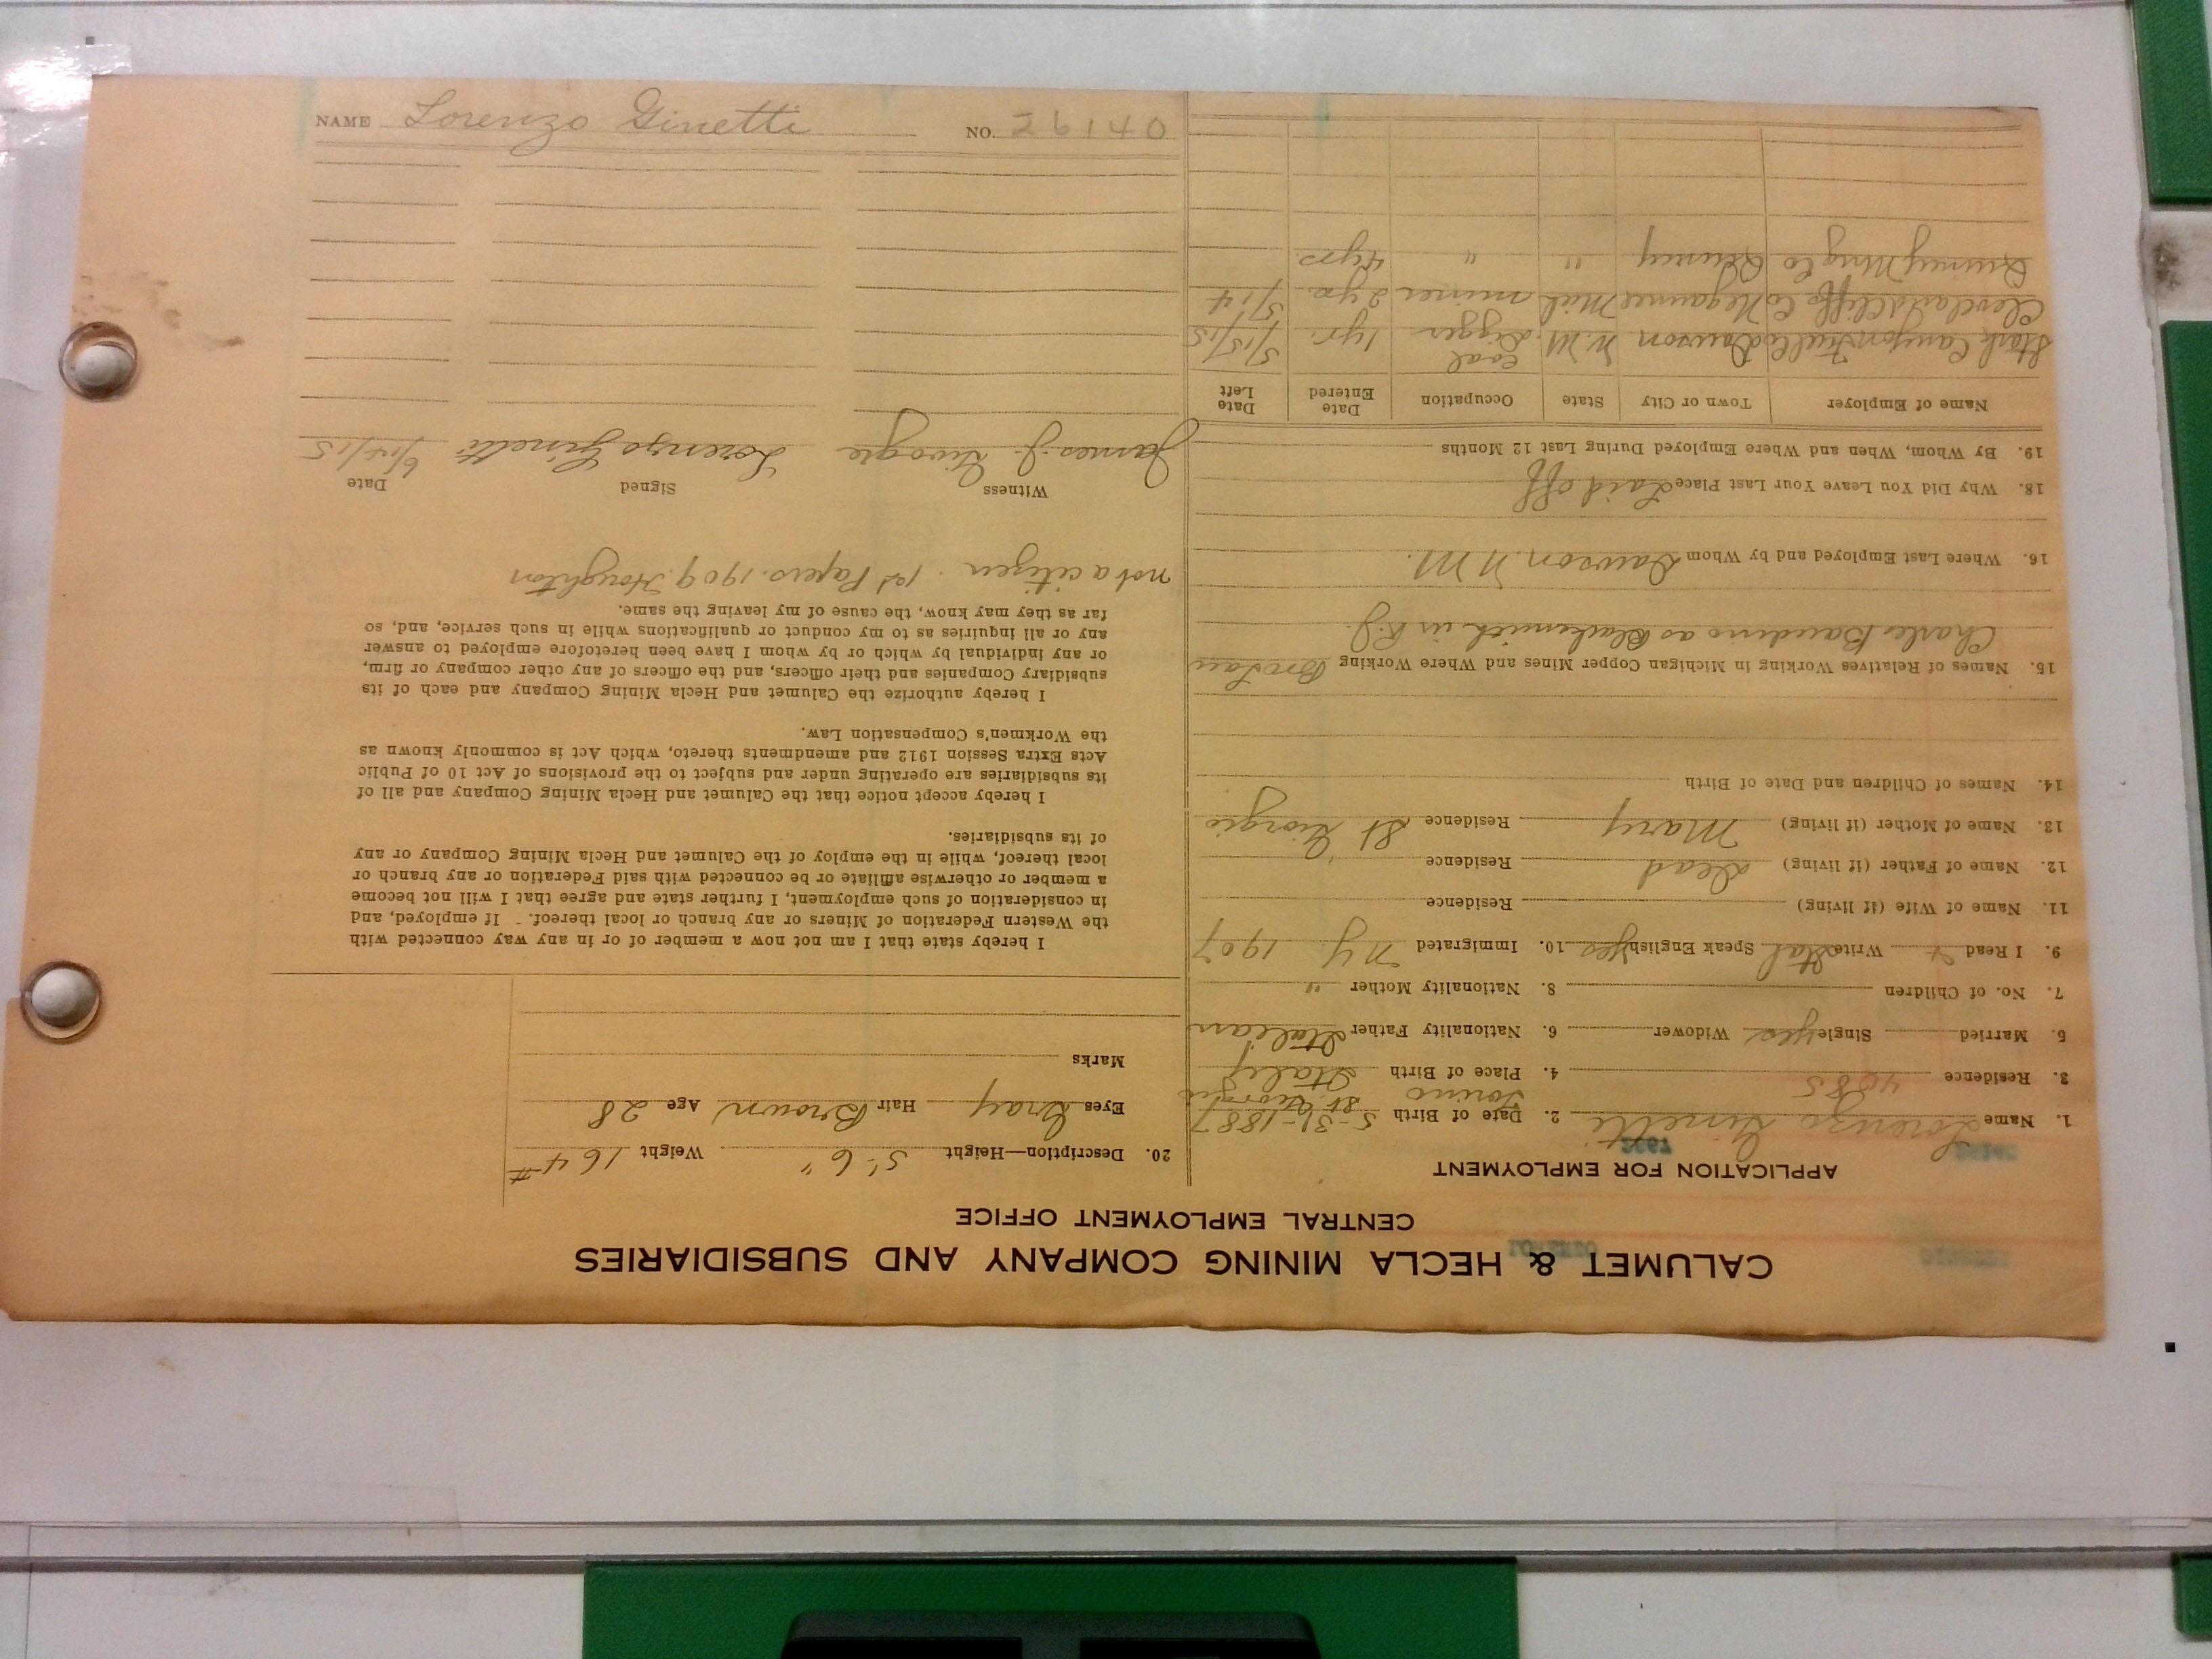 CALUMET & HECLA MINING COMPANY AND SUBSIDIARIES
CENTRAL EMPLOYMENT OFFICE
APPLICATION FOR EMPLOYMENT
1. Name Lorenzo Ginetti 2. Date of Birth 5-31-1887
Torino St. Giorgio
3. Residence 4085 4. Place of Birth Italy
5. Married Single yes Widower 6. Nationality Father Italian
7. No. of Children 8. Nationality Mother "
9. I Read & Write Ital Speak English yes 10. Immigrated N.Y. 1907
11. Name of Wife (if living) Residence
12. Name of Father (if living) Dead Residence
13. Name of Mother (if living) Mary Residence St Giorgio
14. Names of Children and Date of Birth
15. Names of Relatives Working in Michigan Copper Mines and Where Working Bro Law
Charles Baudino as Blacksmith in R.J.
16. Where Last Employed and by Whom Dawson N.M.
18. Why Did You Leave Your Last Place Laid off
19. By Whom, When and Where Employed During Last 12 Months
Name of Employer Town or City State Occupation Date Entered Date Left
Stark Canyon Fuel Co Dawson N.M. Coal Digger 1 yr. 5/15/15
Cleveland Cliffs Co Negaunee Mich miner 2 yrs. 5/14
Quincy Mng Co Quincy " " 4 yrs.
20. Description—Height 5' 6" Weight 164#
Eyes Gray Hair Brown Age 28
Marks
I hereby state that I am not now a member of or in any way connected with
the Western Federation of Miners or any branch or local thereof. If employed, and
in consideration of such employment, I further state and agree that I will not become
a member or otherwise affiliate or be connected with said Federation or any branch or
local thereof, while in the employ of the Calumet and Hecla Mining Company or any
of its subsidiaries.
I hereby accept notice that the Calumet and Hecla Mining Company and all of
its subsidiaries are operating under and subject to the provisions of Act 10 of Public
Acts Extra Session 1912 and amendments thereto, which Act is commonly known as
the Workmen's Compensation Law.
I hereby authorize the Calumet and Hecla Mining Company and each of its
subsidiary Companies and their officers, and the officers of any other company or firm,
or any individual by which or by whom I have been heretofore employed to answer
any or all inquiries as to my conduct or qualifications while in such service, and, so
far as they may know, the cause of my leaving the same.
not a citizen. 1st Papers. 1909 Houghton
Witness Signed Date
James J. Lorenzo Ginetti 6/14/15
NAME Lorenzo Ginetti NO. 26140